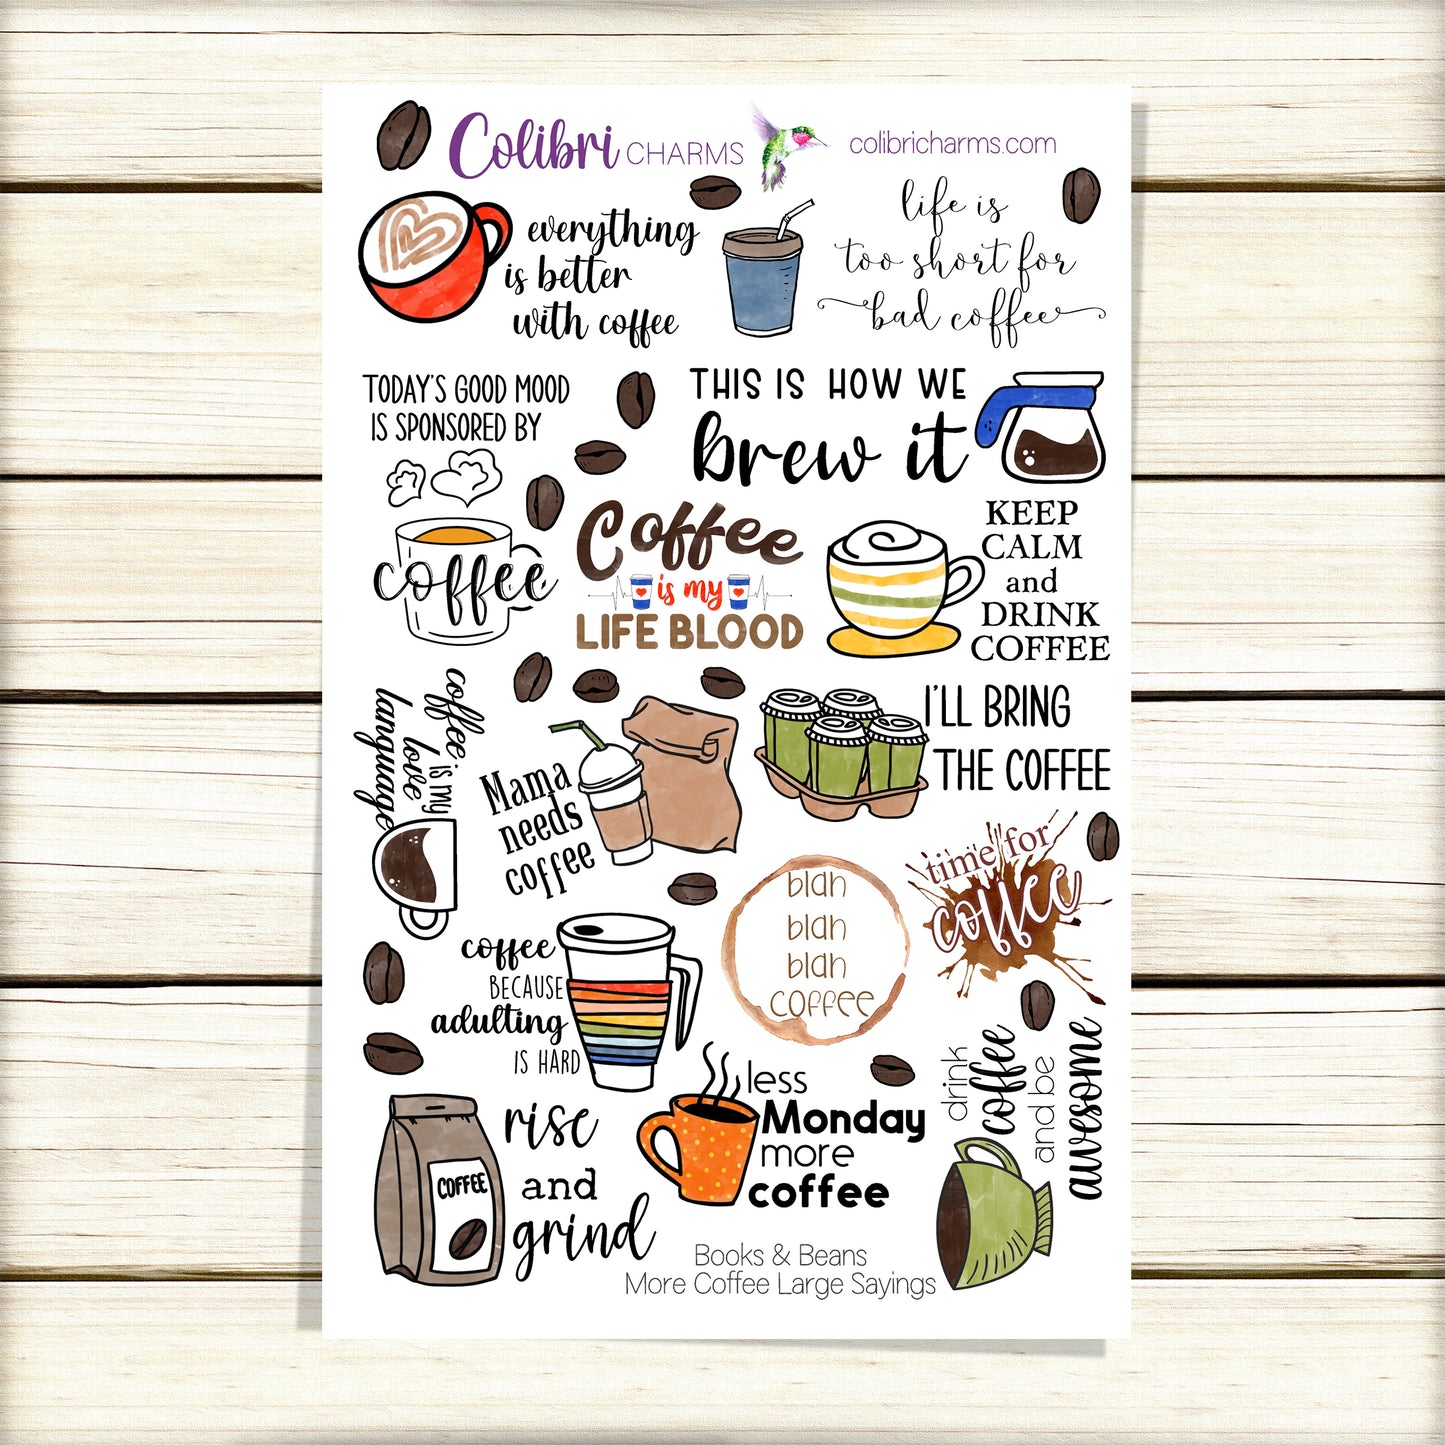 Colibri CHARMS
colibricharms.com
everything
is better
with coffee
life is
too short for
bad coffee
TODAY'S GOOD MOOD
IS SPONSORED BY
coffee
THIS IS HOW WE
brew it
Coffee
is my
LIFE BLOOD
KEEP
CALM
and
DRINK
COFFEE
coffee
is my
love
language
Mama
needs
coffee
I'LL BRING
THE COFFEE
time for
coffee
blah
blah
blah
coffee
coffee
BECAUSE
adulting
IS HARD
drink
coffee
and be
awesome
COFFEE
rise
and
grind
less
Monday
more
coffee
Books & Beans
More Coffee Large Sayings